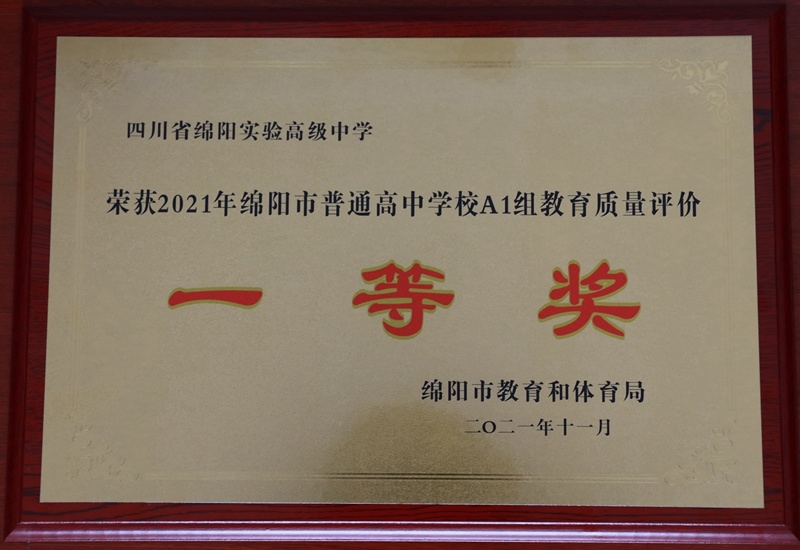 四川省绵阳实验高级中学
荣获2021年绵阳市普通高中学校A1组教育质量评价
一等奖
绵阳市教育和体育局
二〇二一年十一月